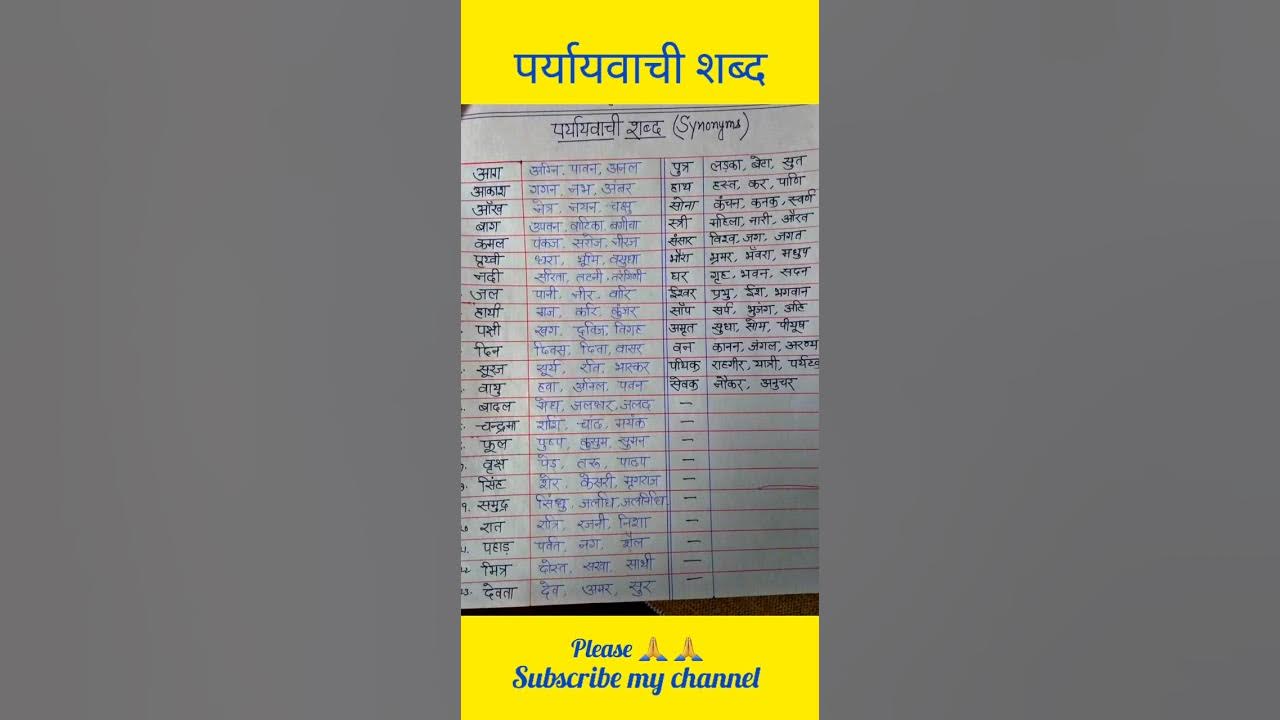 पर्यायवाची शब्द
पर्यायवाची शब्द (Synonyms)
आग अग्नि, पावन, अनल पुत्र लड़का, बेटा, सुत
आकाश गगन, नभ, अंबर हाथ हस्त, कर, पाणि
आँख नेत्र, नयन, चक्षु सोना कंचन, कनक, स्वर्ण
बाग उपवन, वाटिका, बगीचा स्त्री महिला, नारी, औरत
कमल पंकज, सरोज, नीरज संसार विश्व, जग, जगत
पृथ्वी धरा, भूमि, वसुधा भौंरा भ्रमर, भँवरा, मधुप
नदी सरिता, तटनी, तरंगिणी घर गृह, भवन, सदन
जल पानी, नीर, वारि ईश्वर प्रभु, ईश, भगवान
हाथी गज, करि, कुंजर साँप सर्प, भुजंग, अहि
पक्षी खग, द्विज, विहग अमृत सुधा, सोम, पीयूष
दिन दिवस, दिवा, वासर वन कानन, जंगल, अरण्य
सूरज सूर्य, रवि, भास्कर पथिक राहगीर, यात्री,
वायु हवा, अनिल, पवन सेवक नौकर, अनुचर
बादल मेघ, जलधर, जलद —
चन्द्रमा शशि, चांद, मयंक —
फूल पुष्प, कुसुम, सुमन —
वृक्ष पेड़, तरू, पादप —
सिंह शेर, केसरी, मृगराज —
समुद्र सिंधु, जलधि, जलनिधि —
रात रात्रि, रजनी, निशा —
पहाड़ पर्वत, नग, शैल —
मित्र दोस्त, सखा, साथी —
23. देवता देव, अमर, सुर —
Please 🙏 🙏
Subscribe my channel